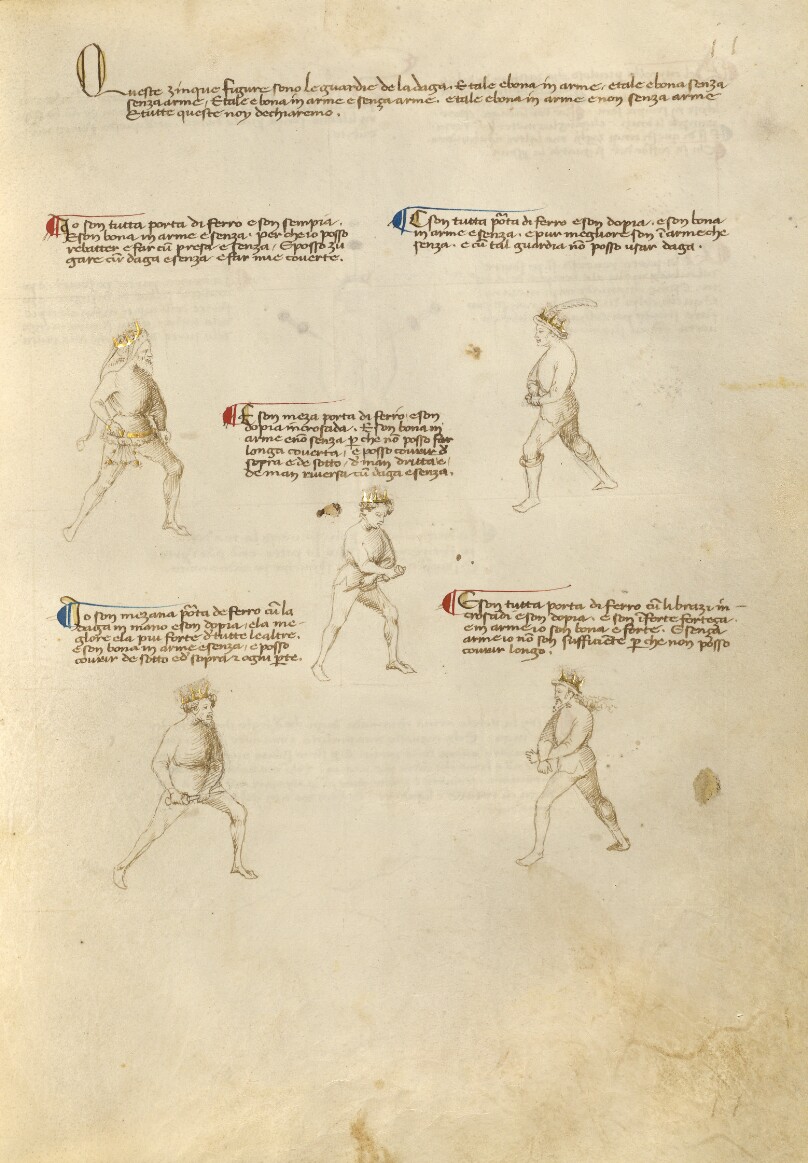 11
Queste zinque figure sono le guardie de la daga. E tale e bona in arme, e tale e bona senza
senza arme, E tale e bona in arme e senza arme. e tale e bona in arme e non senza arme
E tutte queste noy dechiaremo.
Io son tutta porta di ferro e son sempia.
E son bona in arme e senza. per che io posso
rebatter e far cu presa e senza, E posso zu
gare cu daga e senza e far mie couerte.
E son tutta pōta di ferro e son dopia. e son bona
in arme e senza. e pur megliore son ī arme che
senza. e cū tal guardia nō posso usar daga.
E son meza porta di ferro e son
dopia incrosada. E son bona in
arme e nō senza p che nō posso far
longa couerta, e posso courir d
sopra e de sotto, d man dritta e,
de man riuersa cū daga e senza.
Io son mezana pōta de ferro cū la
daga in mano e son dopia, e la me-
gliore e la piu forte d tutte le altre.
e son bona in arme e senza, e posso
courir de sotto ed sopra z ogni pte.
E son tutta porta di ferro cū li brazi in-
crosadi e son dopia. e son ī forte forteça.
e in arme io son bona e forte. E senza
arme io nō son sufficiēte p che non posso
courir longo.